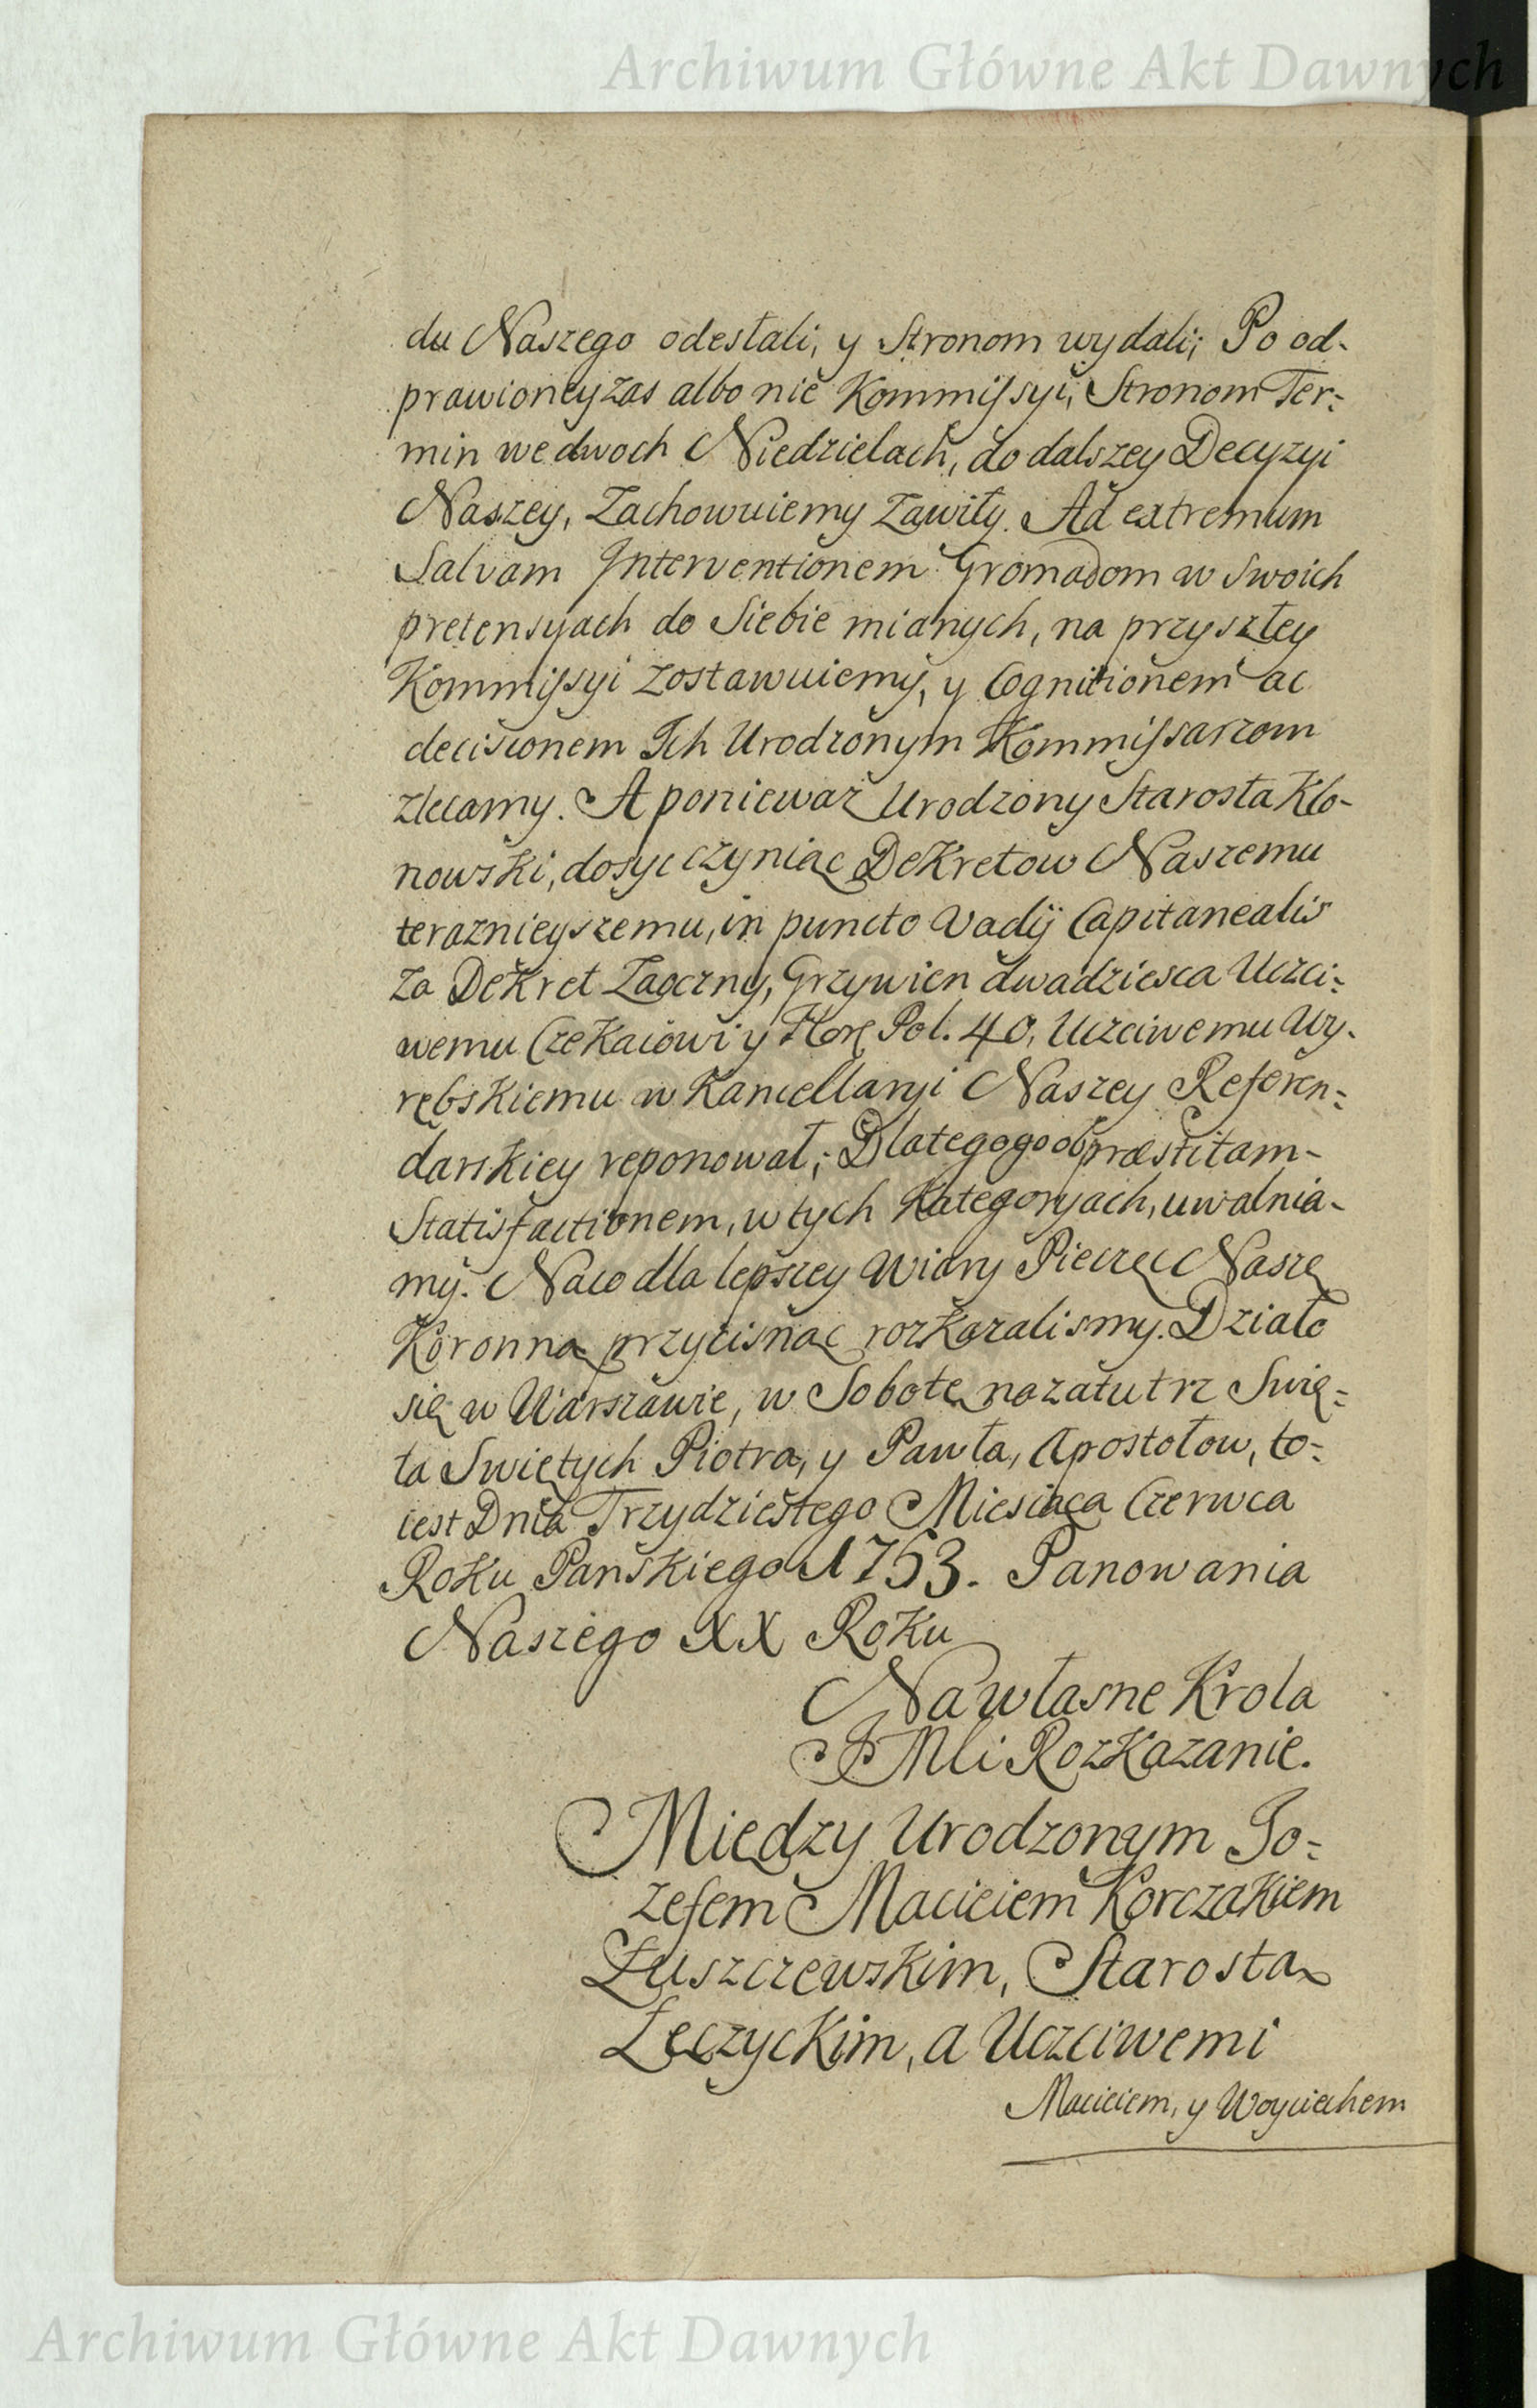 Archiwum Główne Akt Dawnych
du Naszego odesłali, y Stronom wydali; Po od-
prawioney zas albo nie Kommissyi, Stronom Ter-
min we dwoch Niedzielach, do dalszey Decyzyi
Naszey, Zachowuiemy Zawiły. Ad extremum
Salvam Interventionem Gromadom w swoich
pretensyach do Siebie mianych, na przyszłey
Kommissyi zostawuiemy, y Cognitionem ac
decisionem Ich Urodzonym Kommissarzom
zlecamy. A poniewaz Urodzony Starosta Kło-
nowski, dosyc czyniąc Dekretow Naszemu
teraznieyszemu, in puncto Vadij Capitanealis
za Dekret Zaoczny, Grzywien dwadziesca Uczci-
wemu Czekaiowi y Flor Pol. 40, Uczciwemu Wy-
rębskiemu w Kancellaryi Naszey Referen-
darskiey reponował; Dlategogo ob præstitam
Statisfactionem, w tych Kategoryach, uwalnia-
my. Naco dla lepszey Wiary Pieczęc Naszę
Koronną przycisnąc rozkazalismy. Działo
się w Warszawie, w Sobotę nazaiutrz Swię-
ta Swiętych Piotra, y Pawła, Apostołow, to-
iest Dnia Trzydziestego Miesiąca Czerwca
Roku Panskiego 1753. Panowania
Naszego XX Roku
Na własne Krola
JMCi Rozkazanie.
Między Urodzonym Jo-
zefem Macieiem Korczakiem
Łuszczewskim, Starostą
Łęczyckim, a Uczciwemi
Macieiem, y Woyciechem
Archiwum Główne Akt Dawnych